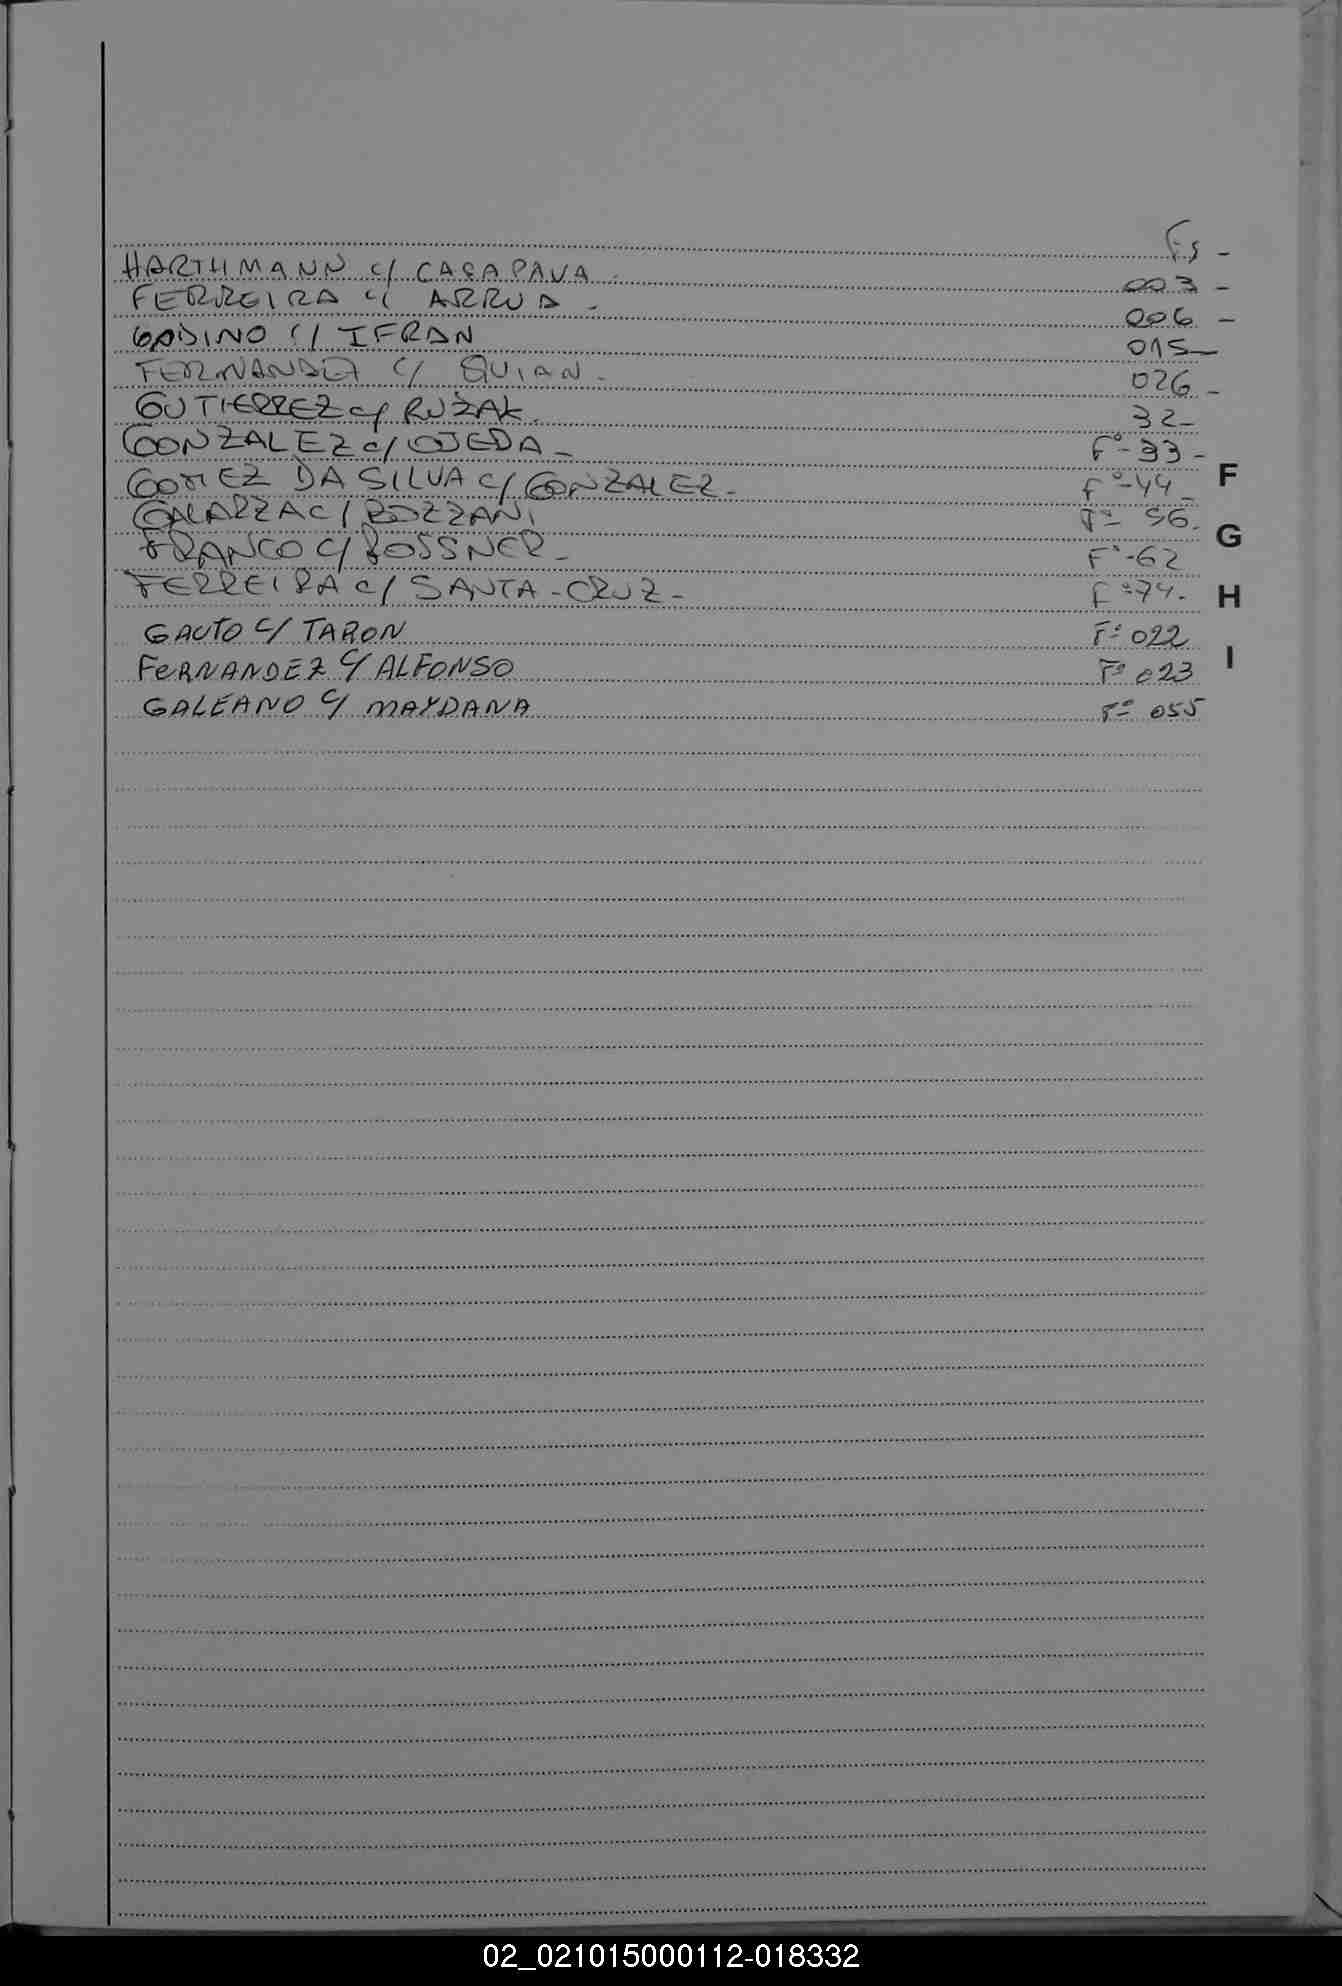 Fs -
HARTHMANN c/ CASAPAVA . 003 -
FERREIRA c/ ARRUA - 006 -
GADINO c/ IFRAN 015-
FERNANDEZ c/ QUIAN - 026 -
GUTIERREZ c/ RUZAK. 32-
GONZALEZ c/ OJEDA - F°-33-
GOMEZ DA SILVA c/ GONZALEZ - F°-44-
GALARZA C/ BOZZANI F° 56.
FRANCO C/ ROSSNER - F°-62
FERREIRA c/ SANTA-CRUZ - F°74-
GAUTO C/ TARON F° 022
FERNANDEZ C/ ALFONSO F° 023
GALEANO C/ MAYDANA F° 055
F
G
H
I
02_021015000112-018332